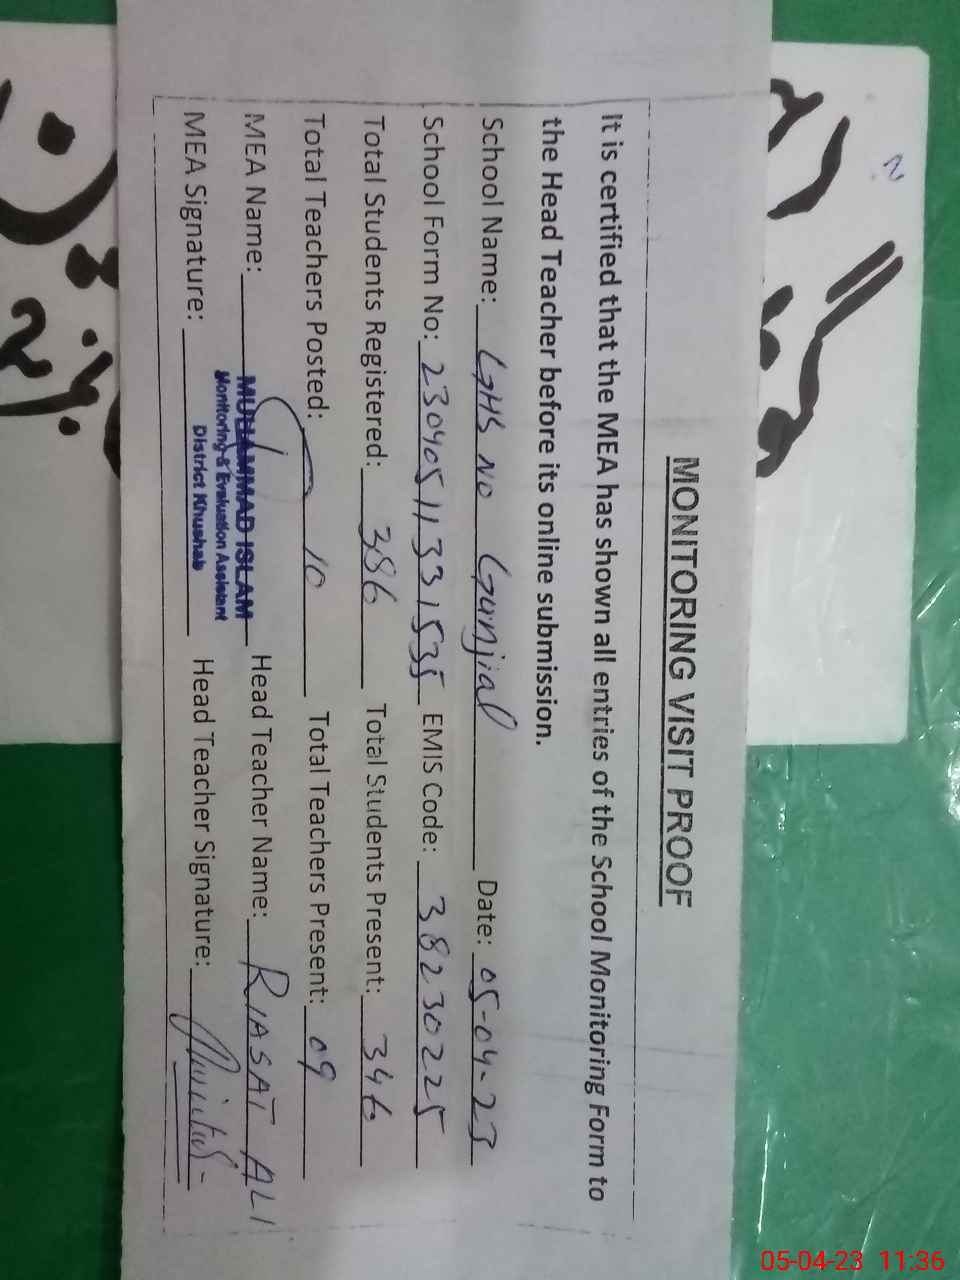 MONITORING VISIT PROOF
It is certified that the MEA has shown all entries of the School Monitoring Form to
the Head Teacher before its online submission.
School Name: GHS NO Gunjial Date: 05-04-23
School Form No: 23040511331535 EMIS Code: 38230225
Total Students Registered: 386 Total Students Present: 346
Total Teachers Posted: 10 Total Teachers Present: 09
MEA Name: MUHAMMAD ISLAM Head Teacher Name: RIASAT ALI
Monitoring & Evaluation Assistant
MEA Signature: District Khushab Head Teacher Signature:
05-04-23 11:36